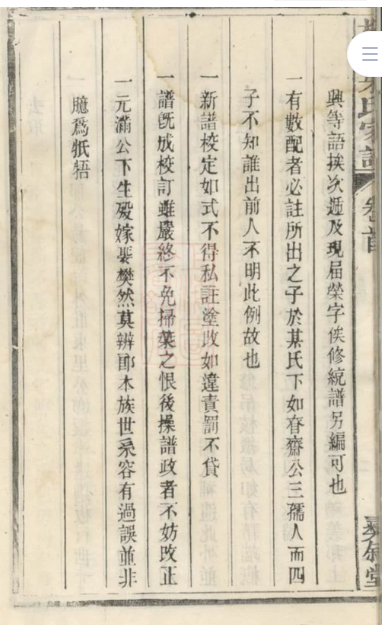 氏家譜 卷首
興等語挨次遞及現届榮字俟修統譜另編可也
一有數配者必註所出之子於某氏下如春齋公三孺人而四
子不知誰出前人不明此例故也
一新譜校定如式不得私註塗改如違責罰不貸
一譜旣成校訂雖嚴終不免掃葉之恨後操譜政者不妨改正
一元滿公下生殁嫁娶樊然莫辨即本族世系容有過誤並非
臆為牴牾
堂